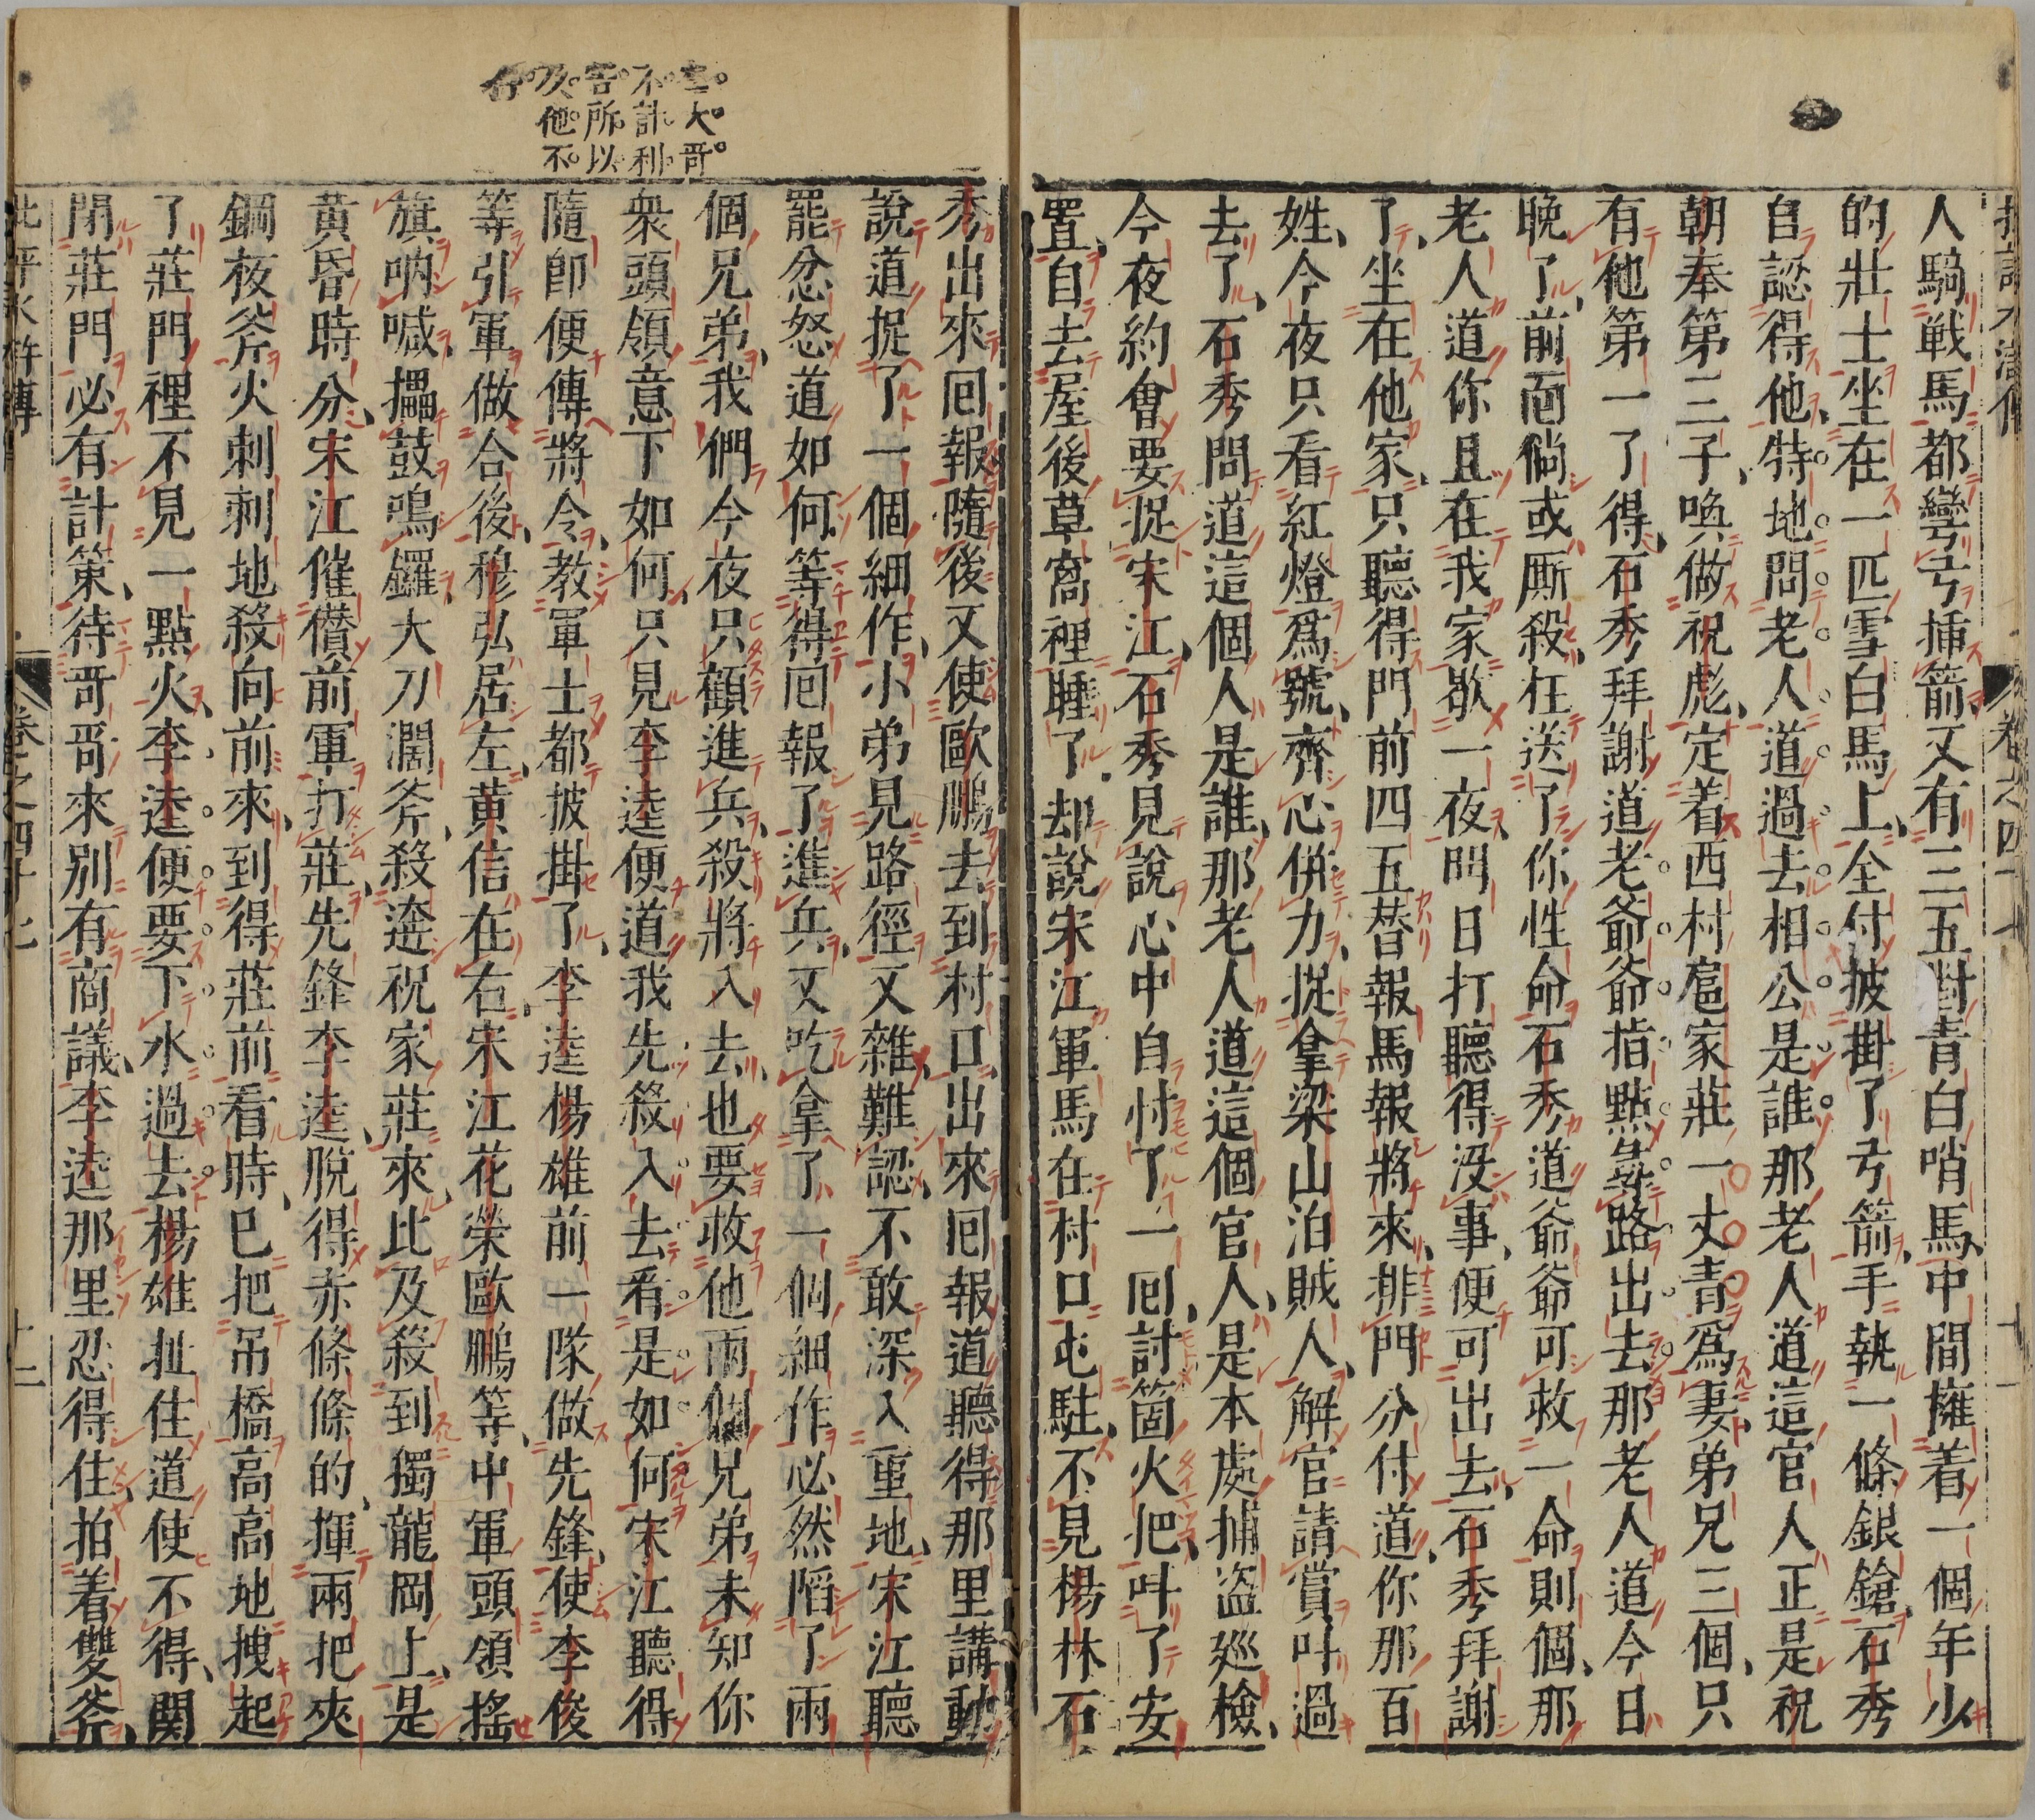 人騎戰馬都彎弓插箭又有三五對青白哨馬中間擁着一個年少
的壯士坐在一匹雪白馬上全付披掛了弓箭手執一條銀鎗石秀
自認得他特地問老人道過去相公是誰那老人道這官人正是祝
朝奉第三子喚做祝彪定着西村扈家莊一丈青爲妻弟兄三個只
有他第一了得石秀拜謝道老爺爺指點尋路出去那老人道今日
晚了前面倘或厮殺枉送了你性命石秀道爺爺可救一命則個那
老人道你且在我家歇一夜明日打聽得没事便可出去石秀拜謝
了坐在他家只聽得門前四五替報馬報將來排門分付道你那百
姓今夜只看紅燈爲號齊心併力捉拿梁山泊賊人解官請賞叶過
去了石秀問道這個人是誰那老人道這個官人是本處捕盜廵檢
今夜約會要捉宋江石秀見說心中自忖了一囬討箇火把叶了安
置自去屋後草窩裡睡了却說宋江軍馬在村口屯駐不見楊林石
秀出來囬報隨後又使歐鵬去到村口出來囬報道聽得那里講動
說道捉了一個細作小弟見路徑又雜難認不敢深入重地宋江聽
罷忿怒道如何等得囬報了進兵又吃拿了一個細作必然陷了兩
個兄弟我們今夜只顧進兵殺將入去也要救他兩個兄弟未知你
衆頭領意下如何只見李逵便道我先殺入去看是如何宋江聽得
隨卽便傳將令教軍士都披掛了李逵楊雄前一隊做先鋒使李俊
等引軍做合後穆弘居左黄信在右宋江花榮歐鵬等中軍頭領搖
旗吶喊擂鼓鳴鑼大刀濶斧殺迸祝家莊來比及殺到獨龍岡上是
黄昏時分宋江催儹前軍打莊先鋒李逵脫得赤條條的揮兩把夾
鋼板斧火剌剌地殺向前來到得莊前看時巳把吊橋高高地拽起
了莊門裡不見一點火李逵便要下水過去楊雄扯住道使不得関
閉莊門必有計策待哥哥來別有商議李逵那里忍得住拍着雙斧
大哥
不計利
害所以
及他不
卷之四十七
十二